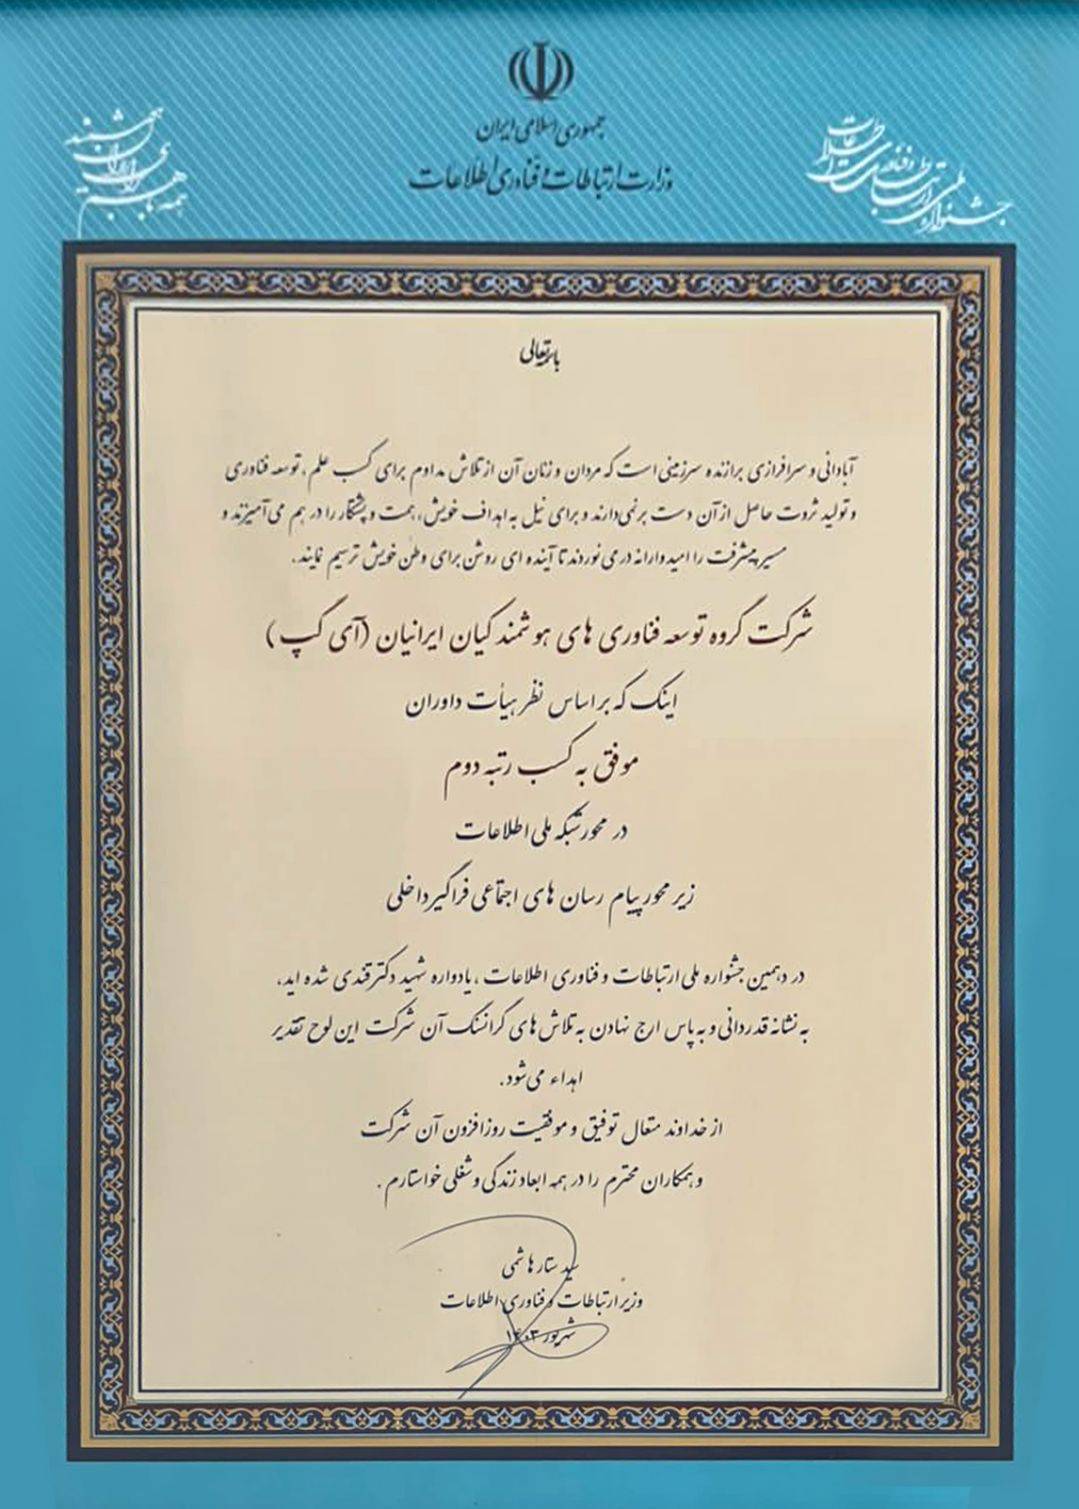 جمهوری اسلامی ایران
وزارت ارتباطات و فناوری اطلاعات
جشنواره ملی ارتباطات و فناوری اطلاعات
همه با هم برای ایران هوشمند
باسمه تعالی
آبادانی و سرافرازی برازنده سرزمینی است که مردان و زنان آن از تلاش مداوم برای کسب علم، توسعه فناوری
و تولید ثروت حاصل از آن دست برنمی‌دارند و برای نیل به اهداف خویش، همت و پشتکار را در هم می‌آمیزند و
مسیر پیشرفت را امیدوارانه در می نوردند تا آینده ای روشن برای وطن خویش ترسیم نمایند.
شرکت گروه توسعه فناوری های هوشمند کیان ایرانیان (آی گپ)
اینک که بر اساس نظر هیأت داوران
موفق به کسب رتبه دوم
در محور شبکه ملی اطلاعات
زیر محور پیام رسان های اجتماعی فراگیر داخلی
در دهمین جشنواره ملی ارتباطات و فناوری اطلاعات، یادواره شهید دکتر قندی شده اید،
به نشانه قدردانی و به پاس ارج نهادن به تلاش های گرانسنگ آن شرکت این لوح تقدیر
اهداء می‌شود.
از خداوند متعال توفیق و موفقیت روزافزون آن شرکت
و همکاران محترم را در همه ابعاد زندگی و شغلی خواستارم.
سید ستار هاشمی
وزیر ارتباطات و فناوری اطلاعات
شهریور ۱۴۰۳